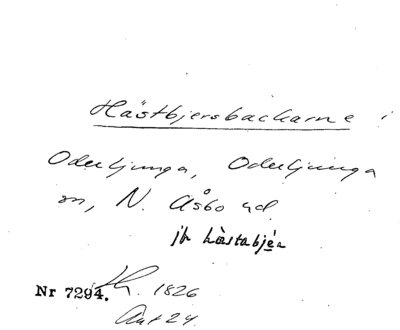 Hästbjersbackarne i
Oderljunga, Oderljunga
sn, N. Åsbo hd
jfr hästabjär
Nr 7294. 1826
Akt 24